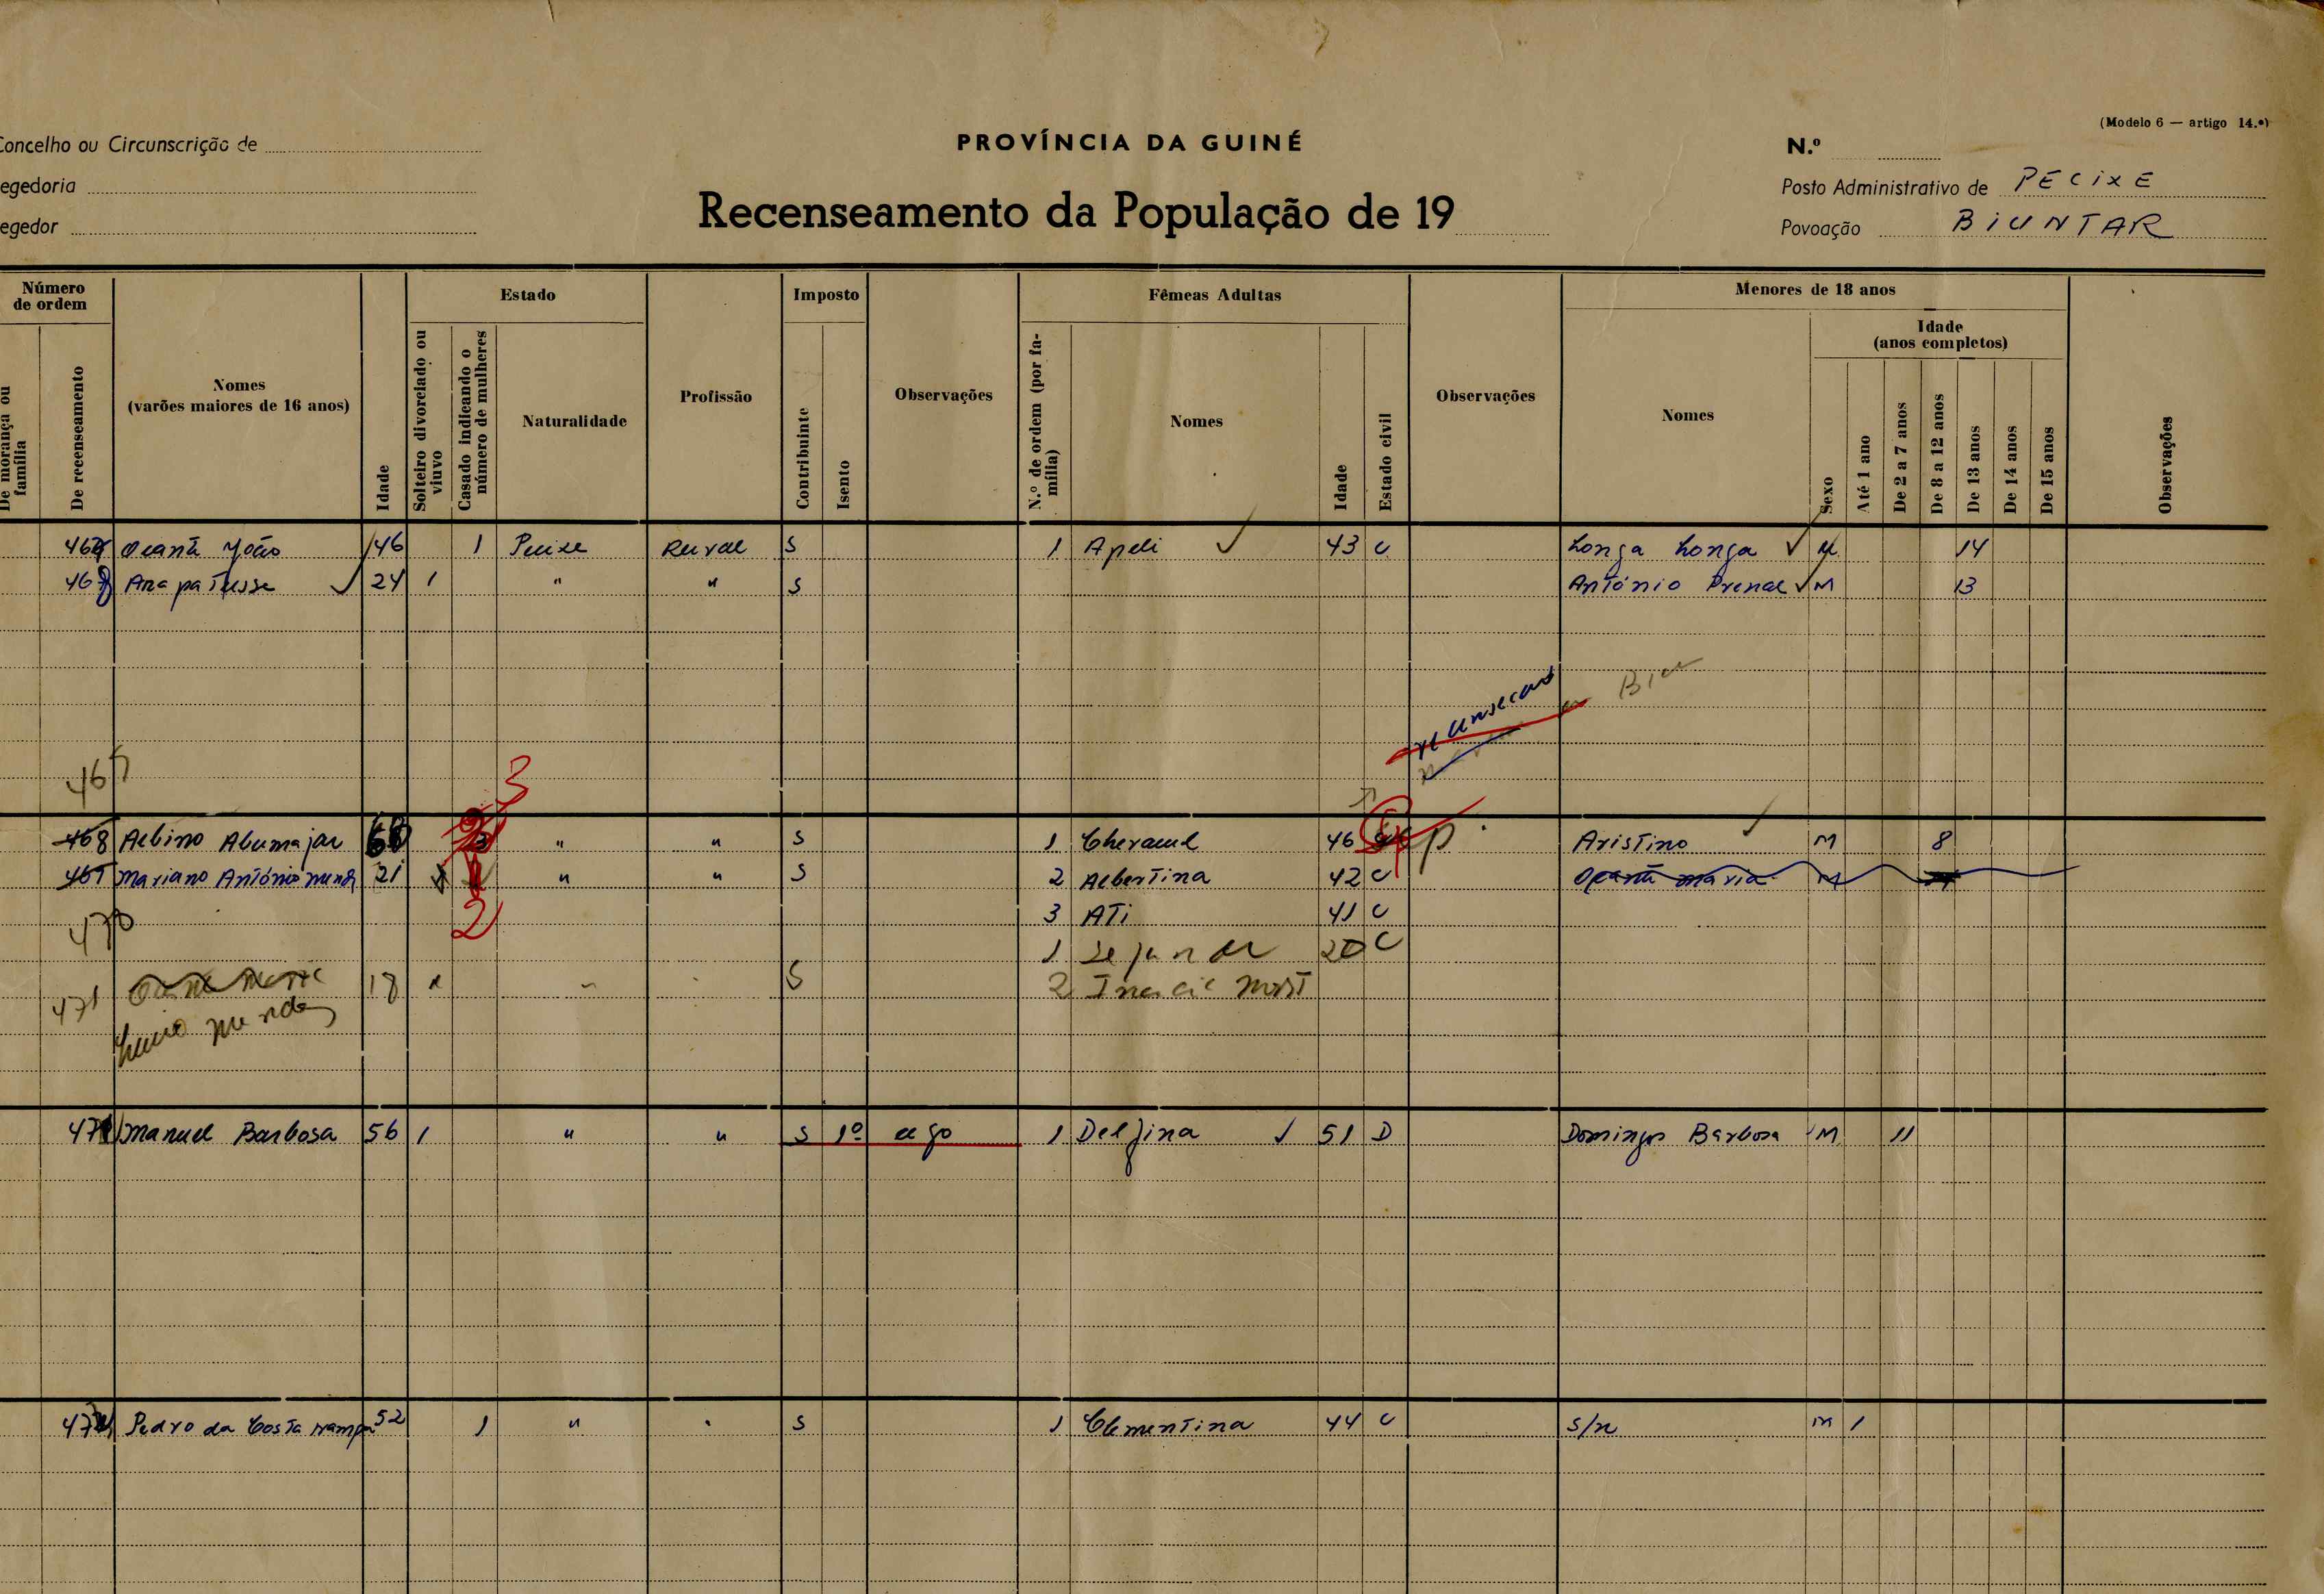 (Modelo 6 — artigo 14.º)
Concelho ou Circunscrição de
PROVÍNCIA DA GUINÉ
N.º
egedoria
Posto Administrativo de PECIXE
egedor
Recenseamento da População de 19
Povoação BIUNTAR
Número de ordem
Estado
Imposto
Fêmeas Adultas
Menores de 18 anos
De morança ou família
De recenseamento
Nomes
(varões maiores de 16 anos)
Idade
Solteiro divorciado ou viuvo
Casado indicando o número de mulheres
Naturalidade
Profissão
Contribuinte
Isento
Observações
N.º de ordem (por família)
Nomes
Idade
Estado civil
Observações
Nomes
Sexo
Idade
(anos completos)
Até 1 ano
De 2 a 7 anos
De 8 a 12 anos
De 13 anos
De 14 anos
De 15 anos
Observações
Ocantã João 46 1 Pecixe Rural S 1 Apeli 43 C Longa Longa M 14
24 1 " " S António Prenal M 13
3
468 Albino " " S 1 46 Aristino M 8
Mariano António 21 " " S 2 Albertina 42 C Ocantã Maria M
470 2 3 ATi 41 C
1 20 C
471 18 S 2
Manuel Barbosa 56 1 " " S 1º 1 Delfina 51 D Domingos Barbosa M 11
Pedro da Costa 52 1 " " S 1 Clementina 44 C S/n M 1